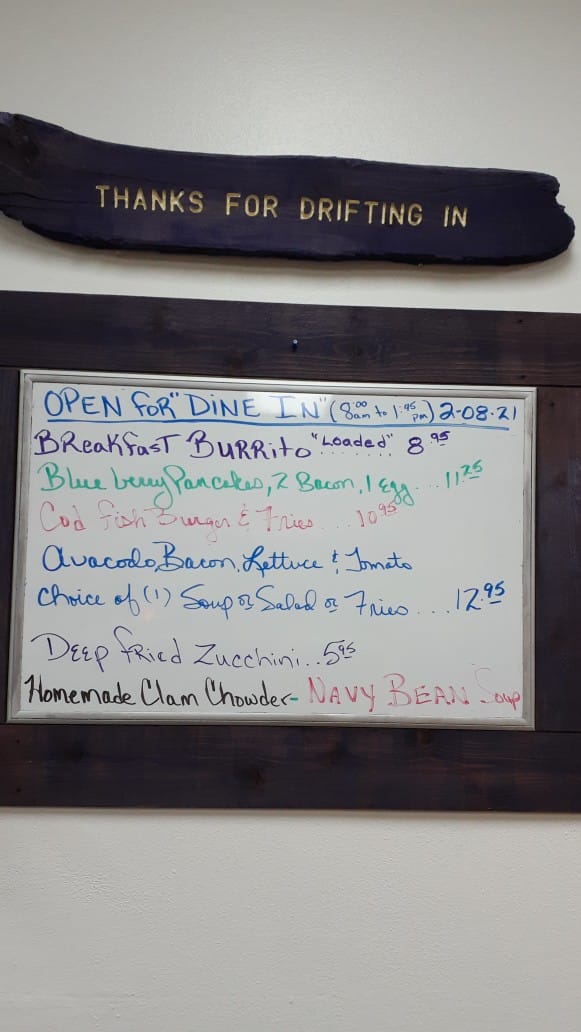 THANKS FOR DRIFTING IN
OPEN FOR "DINE IN" (8:00 am to 1:45 pm) 2-08-21
BREAKFAST BURRITO "Loaded" 8.95
Blueberry Pancakes, 2 Bacon, 1 Egg... 11.25
Cod fish Burger & Fries... 10.95
Avacodo, Bacon, Lettuce & Tomato
Choice of (1) Soup or Salad or Fries.... 12.95
Deep fried Zucchini... 5.95
Homemade Clam Chowder- NAVY BEAN Soup